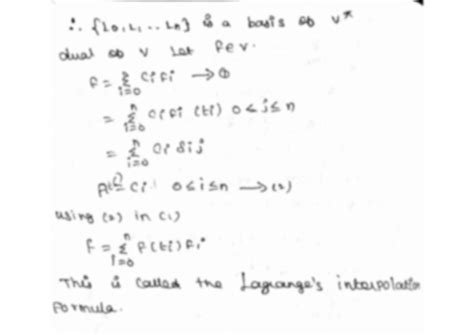 ∴ {L0, L, .. Ln} is a basis of V*
dual of V Let f ∈ V.
f = Σ_{i=0}^{n} Ci fi → ①
= Σ_{i=0}^{n} Ci fi (ti) 0 ≤ j ≤ n
= Σ_{i=0}^{n} Ci δij
= Ci 0 ≤ i ≤ n → (2)
using (2) in (1)
f = Σ_{i=0}^{n} f(ti) fi
This is called the Lagrange's interpolation
formula.